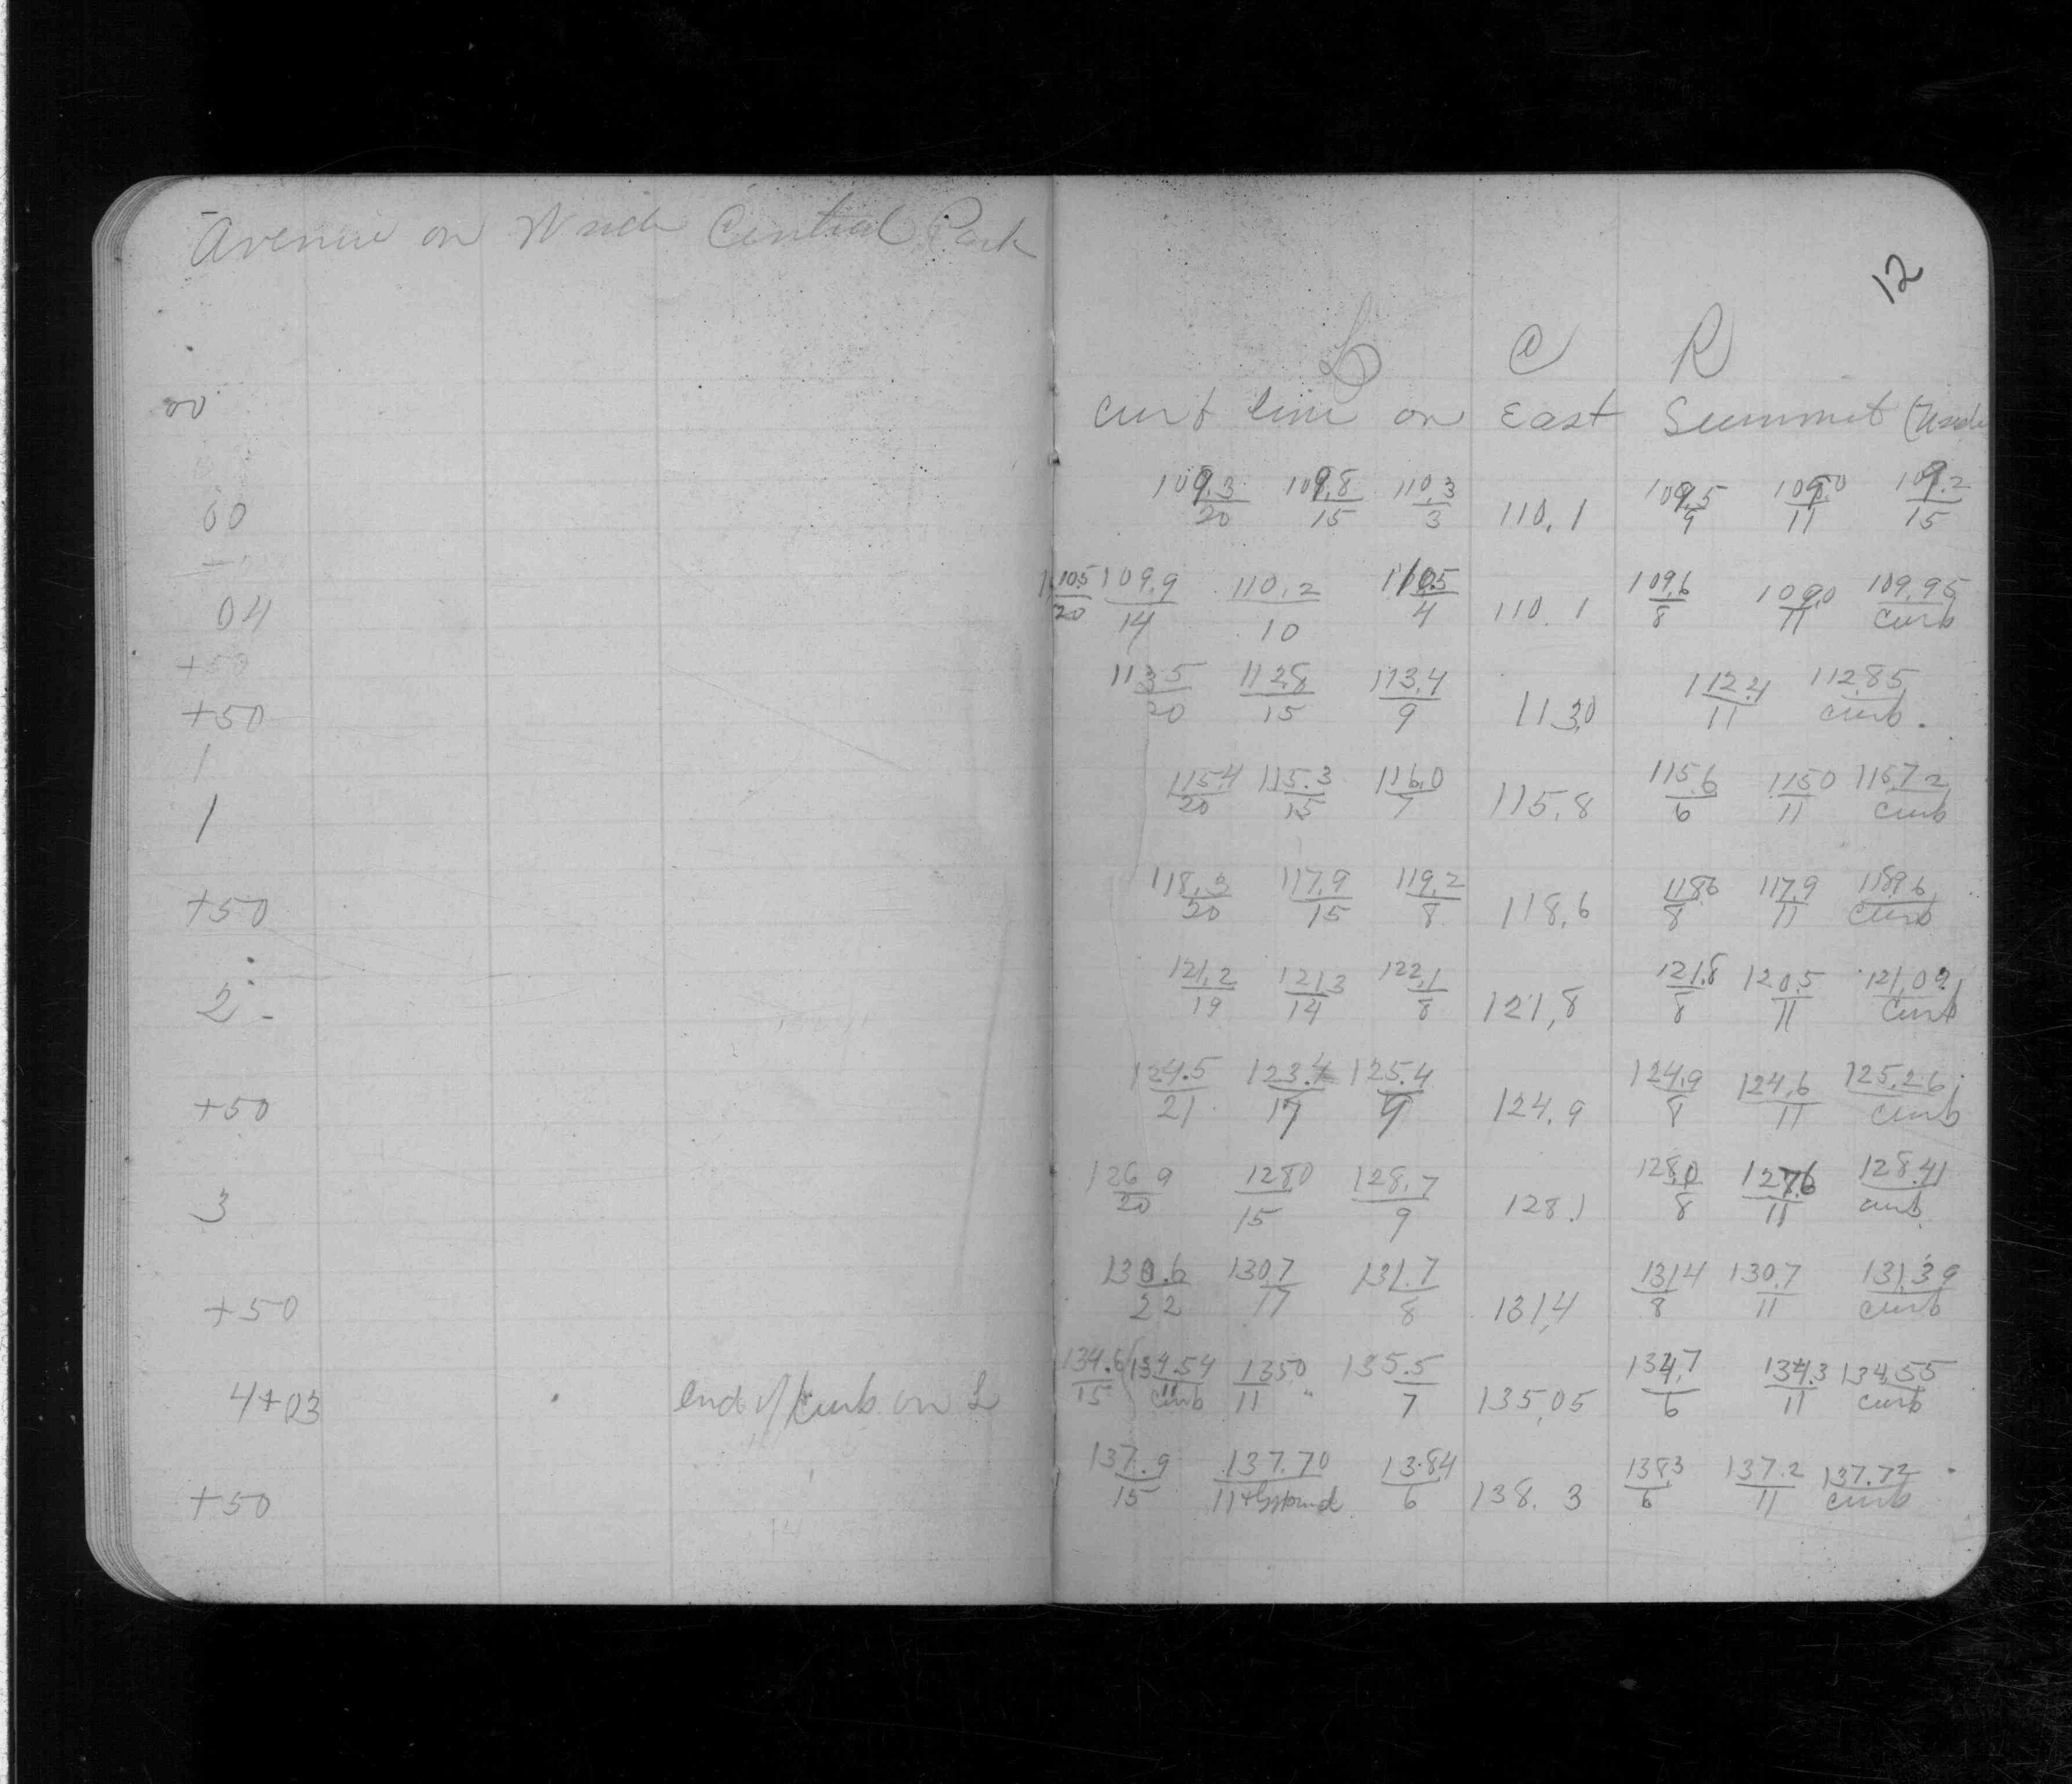 Avenue on W side Central Park
12
L C R
00 curb line on East Summit (W side
00 109.3/20 109.8/15 110.3/3 110.1 109.5/9 109.0/11 109.2/15
04 110.5/20 109.9/14 110.2/10 110.5/4 110.1 109.6/8 109.0/11 109.95/curb
+50
+50 113.5/20 112.8/15 113.4/9 113.0 112.4/11 112.85/curb.
1
1 115.4/20 115.3/15 116.0/7 115.8 115.6/6 115.0/11 115.72/curb
+50 118.3/20 117.9/15 119.2/8 118.6 118.6/8 117.9/11 118.96/curb
2 121.2/19 121.3/14 122.1/8 121.8 121.8/8 120.5/11 121.09/curb
+50 124.5/21 123.4/17 125.4/9 124.9 124.9/8 124.6/11 125.26/curb
3 126.9/20 128.0/15 128.7/9 128.1 128.0/8 127.6/11 128.41/curb
+50 130.6/22 130.7/17 131.7/8 131.4 131.4/8 130.7/11 131.39/curb
4+03 end of curb on L 134.6/15 134.54/curb 135.0/11 135.5/7 135.05 134.7/6 134.3/11 134.55/curb
+50 137.9/15 137.70/11+Ground 138.4/6 138.3 138.3/6 137.2/11 137.72/curb